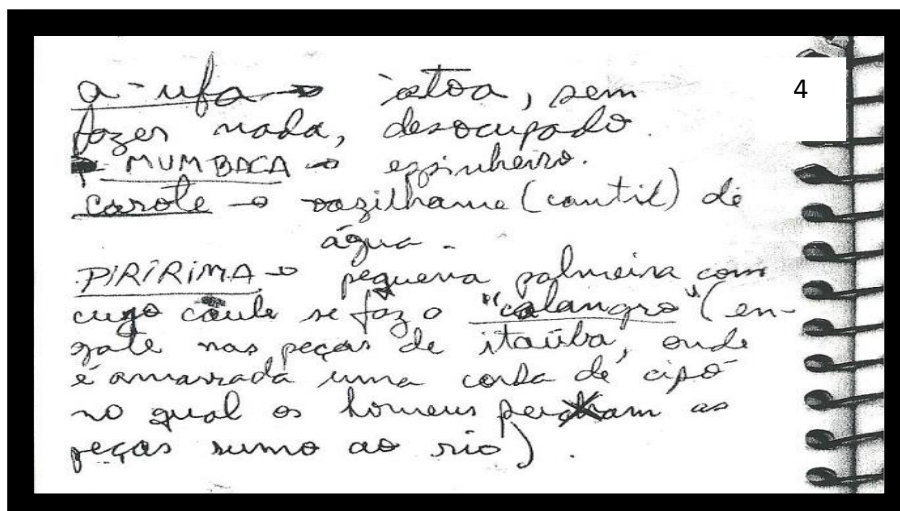 a-ufa → àtoa, sem
4
fazer nada, desocupado.
- MUMBACA → espinheiro.
Carote → vazilhame (cantil) de
água.
PIRIRIMA → pequena palmeira com
cujo caule se faz o "calangro" (en-
gate nas peças de itaúba, onde
é amarrada uma corda de cipó
no qual os homens puxam as
peças rumo ao rio).